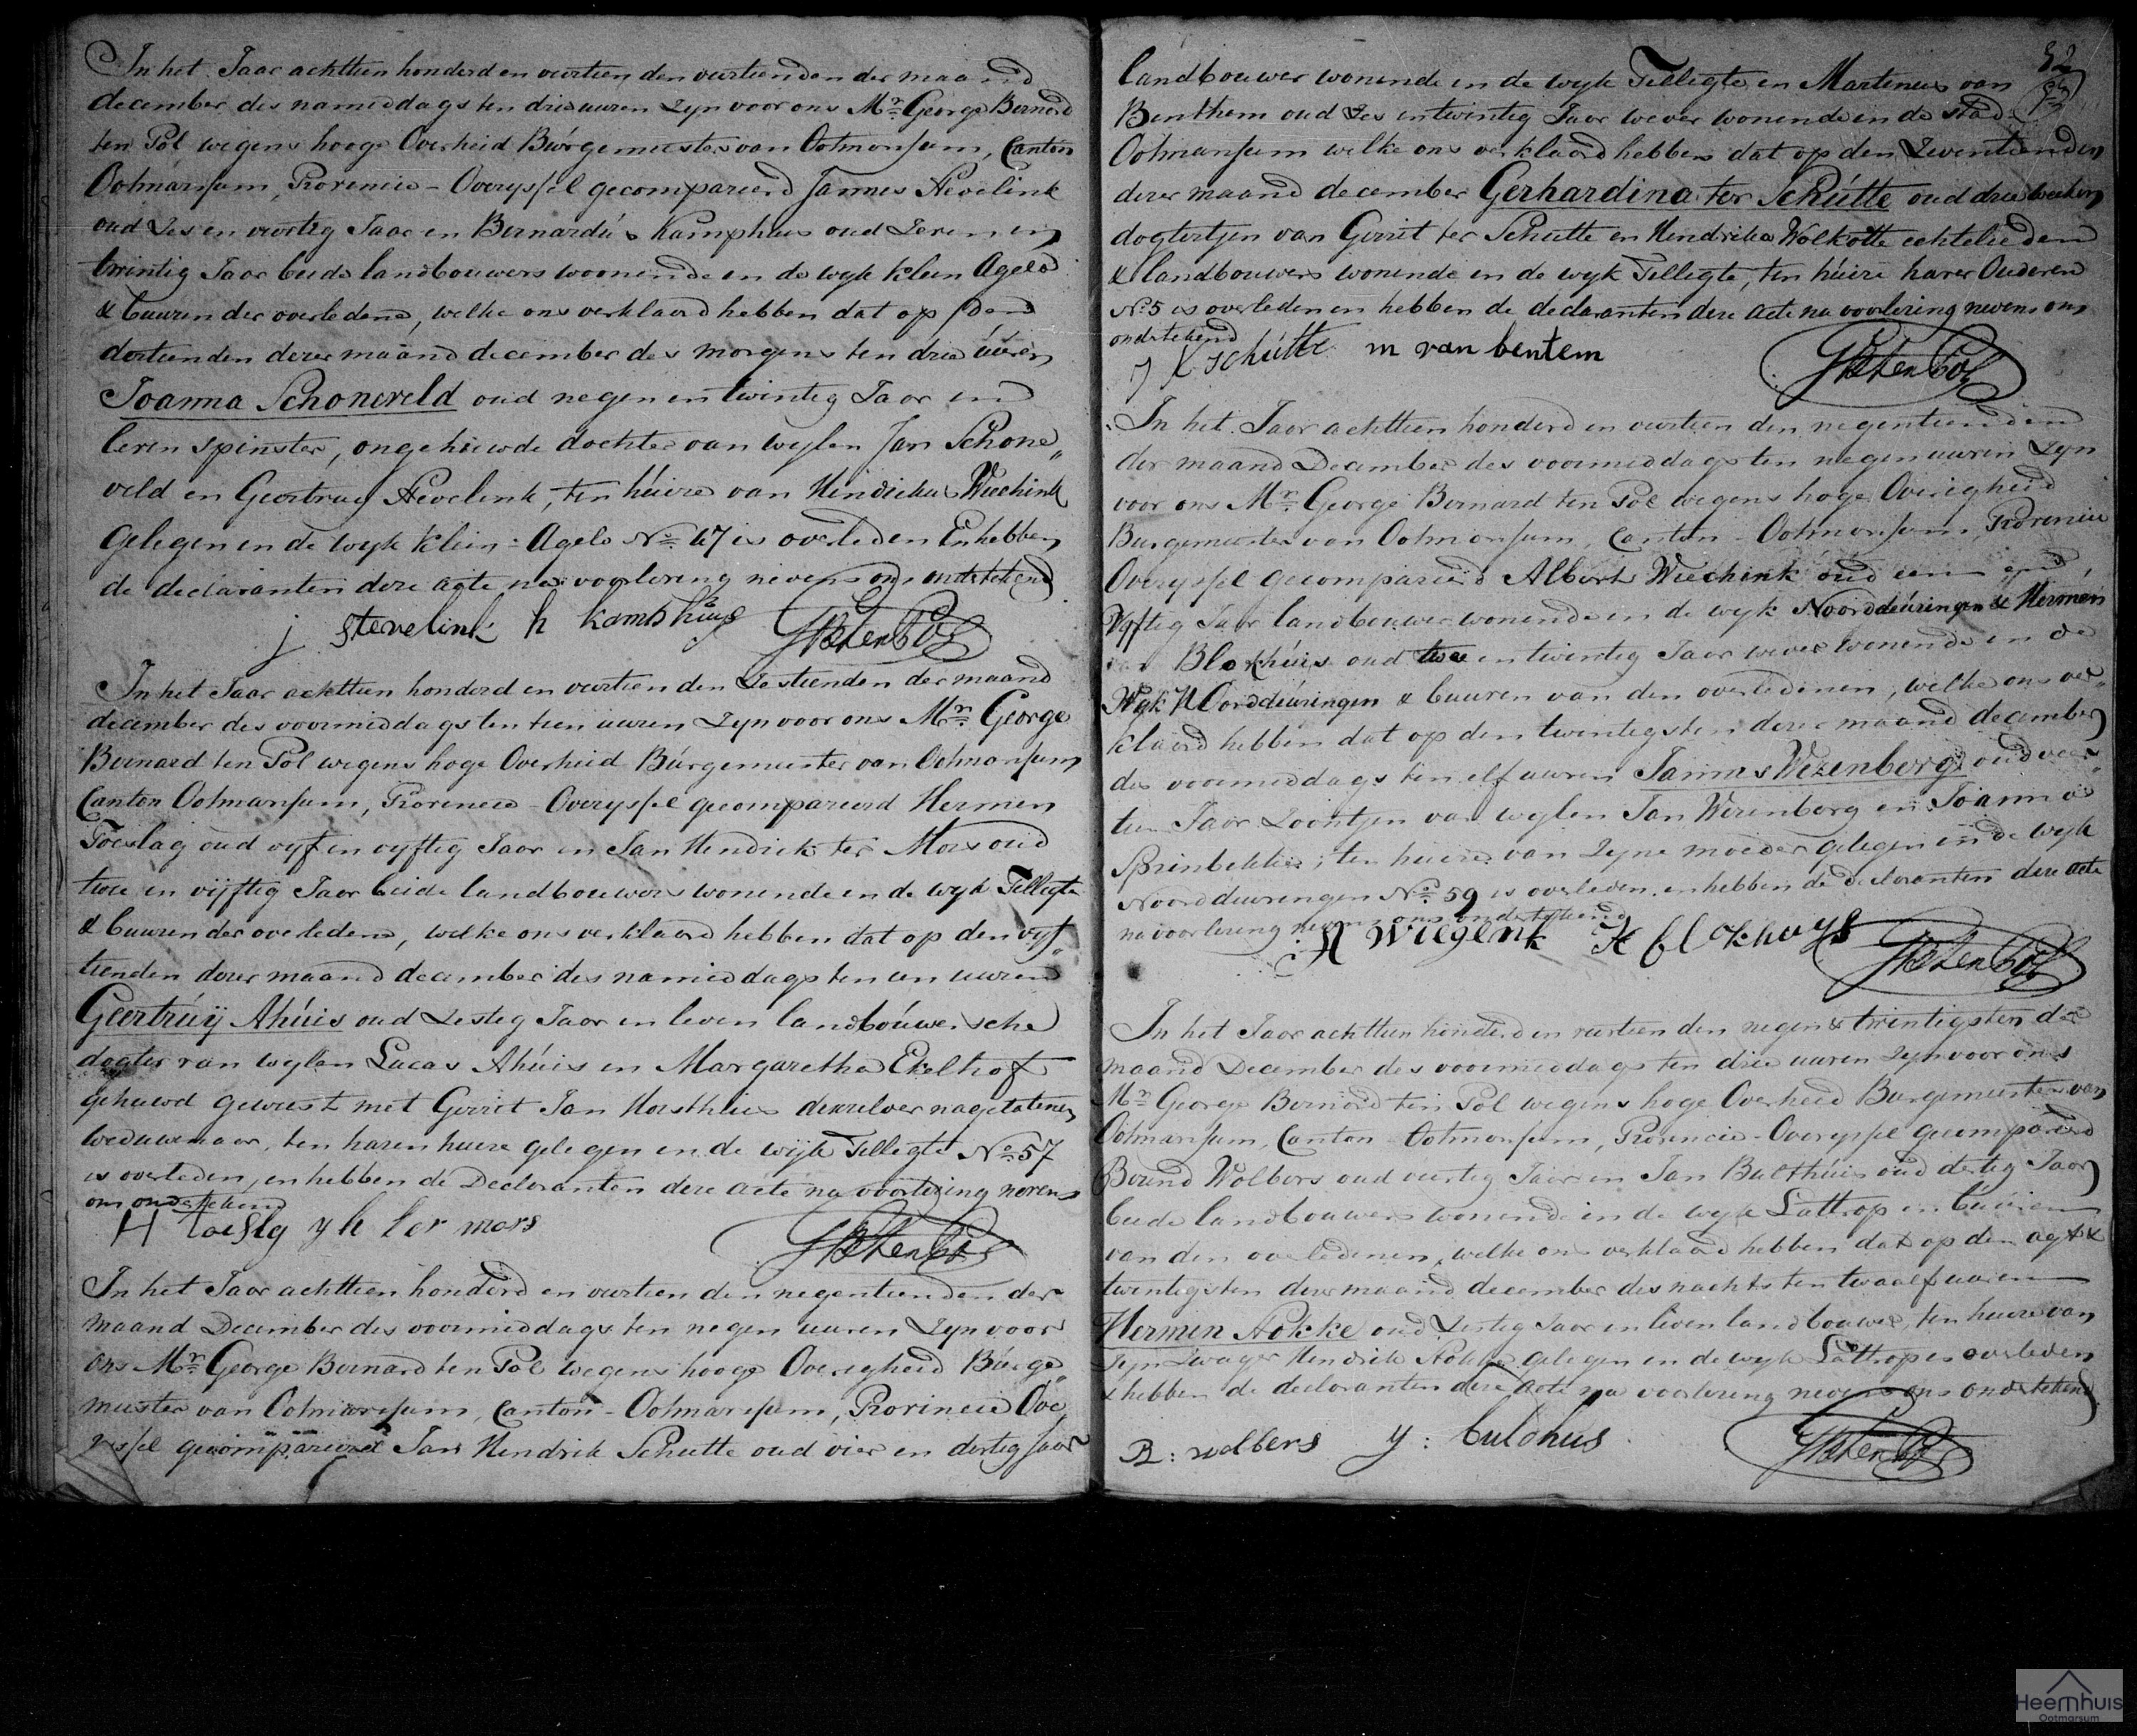 In het Jaar achttien honderd en veertien den veertienden der maand
december des nameddags ten drie uuren Zyn voor ons Mr. George Bernard
ten Pol wegens hooge Overheid Búrgemeester van Ootmarsum, Canton
Ootmarsum, Provincie - Overyssel gecompareerd Jannes Stevelink
oud Zes en veertig Jaar en Bernardús Kamphuis oud Zeven en
twintig Jaar beide landbouwers woonende in de wyk klein Agelo
& buuren der overledene, welke ons verklaard hebben dat op den
dertienden dezer maand december des morgens ten drie úúren
Joanna Schoneveld oud negen en twintig Jaar in
leven spinster, ongehuwde dochter van wylen Jan Schone„
veld en Geertruy Hevelink, ten húize van Hendrikus Wiechink
gelegen in de wyk Klein - Agelo No. 47 is overleden En hebben
de declaranten deze acte na voorlezing nevens ons onderteekend
j stevelink h kamphuys GBtenPol
In het Jaar achttien honderd en veertien den Zestienden der maand
december des voormiddags ten tien uuren Zyn voor ons Mr. George
Bernard ten Pol wegens hoge Overheid Búrgemeester van Ootmarsum
Canton Ootmarsum, Provincie - Overyssel gecompareerd Hermen
Toeslag oud vyf en vyftig Jaar en Jan Hendrik ter Mors oud
twee en vijftig Jaar beide landbouwers wonende in de wyk Tilligte
& buuren der overledene, welke ons verklaard hebben dat op den vyf„
tienden dezer maand december des namiddags ten een uuren
Geertrúij Ahúis oud Zestig Jaar in leven landboúwersche
dogter van wylen Lucas Ahúis en Margaretha Ekelhof
gehuwd geweest met Gerrit Jan Horsthuis deszelver nagelatenen
weduwenaar, ten haren huize gelegen in de wijk Tilligte No. 57
is overleden, en hebben de Declaranten deze acte na voorlezing nevens
ons onderteekend
H toeslg y h ter mors GBtenPol
In het Jaar achttien honderd en veertien den negentienden der
maand December des voormiddags ten negen uuren Zyn voor
ons Mr. George Bernard ten Pol wegens hooge Overigheid Búrge„
meester van Ootmarsum, Canton - Ootmarsum, Provincie Ove„
ryssel gecompareerd Jan Hendrik Schutte oud vier en dertig Jaar
52
landbouwer wonende in de wyk Tilligte en Martenus van
Benthem oud Zes en twintig Jaar wever wonende in de stad
Ootmarsum welke ons verklaard hebben dat op den Zeventienden
dezer maand december Gerhardina ter Schútte oud drie weeken
dogtertjen van Gerrit ter Schutte en Hendrika Wolkotte echtelieden
& landbouwers wonende in de wyk Tilligte, ten húize harer Ouderen
No. 5 is overleden en hebben de declaranten deze acte na voorlezing nevens ons
onderteekend
J H schútte m van bentem GBtenPol
In het Jaar achttien honderd en veertien den negentienden
der maand December des voormiddags ten negen uuren Zyn
voor ons Mr. George Bernard ten Pol wegens hoge Overigheid
Burgemeester van Ootmarsum, Canton - Ootmarsum, Provincie
Overyssel gecompareerd Albert Wiechink oúd een end
Vyftig Jaar landbouwer wonende in de wyk Noorddeúringen & Hermen
van Blokhúis oud twee en twintig Jaar wever wonende in de
Wyk Noorddeúringen & buuren van den overledenen, welke ons ver„
klaard hebben dat op den twintigsten dezer maand december
des voormiddags ten elf uuren Jannes Wezenberg oud veer„
tien Jaar Zoontjen van wylen Jan Wezenberg en Joanna
ten huize van Zyne moeder gelegen in de wyk
Noorddeuringen No. 59 is overleden. en hebben de declaranten deze acte
na voorlezing nevens ons onderteekend
A Wiegenk H blokhuys GBtenPol
In het Jaar achttien honderd en veertien den negen & twintigsten der
maand December des voormiddags ten drie uuren Zyn voor ons
Mr. George Bernard ten Pol wegens hoge Overheid Burgemeester van
Ootmarsum, Canton Ootmarsum, Provincie - Overyssel gecompareerd
Berend Wolbers oud veertig Jaar en Jan Bulthúis oud dertig Jaar
beide landbouwers wonende in de wyk Lattrop en búúren
van den overledenen, welke ons verklaard hebben dat op den agt &
twintigsten dezer maand december des nachts ten twaalf uuren
Hermen Nokke oud Zestig Jaar in leven landbouwer, ten huize van
Zyn Zwager Hendrik Nokke gelegen in de wyk Lattrop is overleden
& hebben de declaranten deze Acte na voorlezing nevens ons onderteekend
B: wolbers y: bulohus GBtenPol
Heemhuis
Ootmarsum